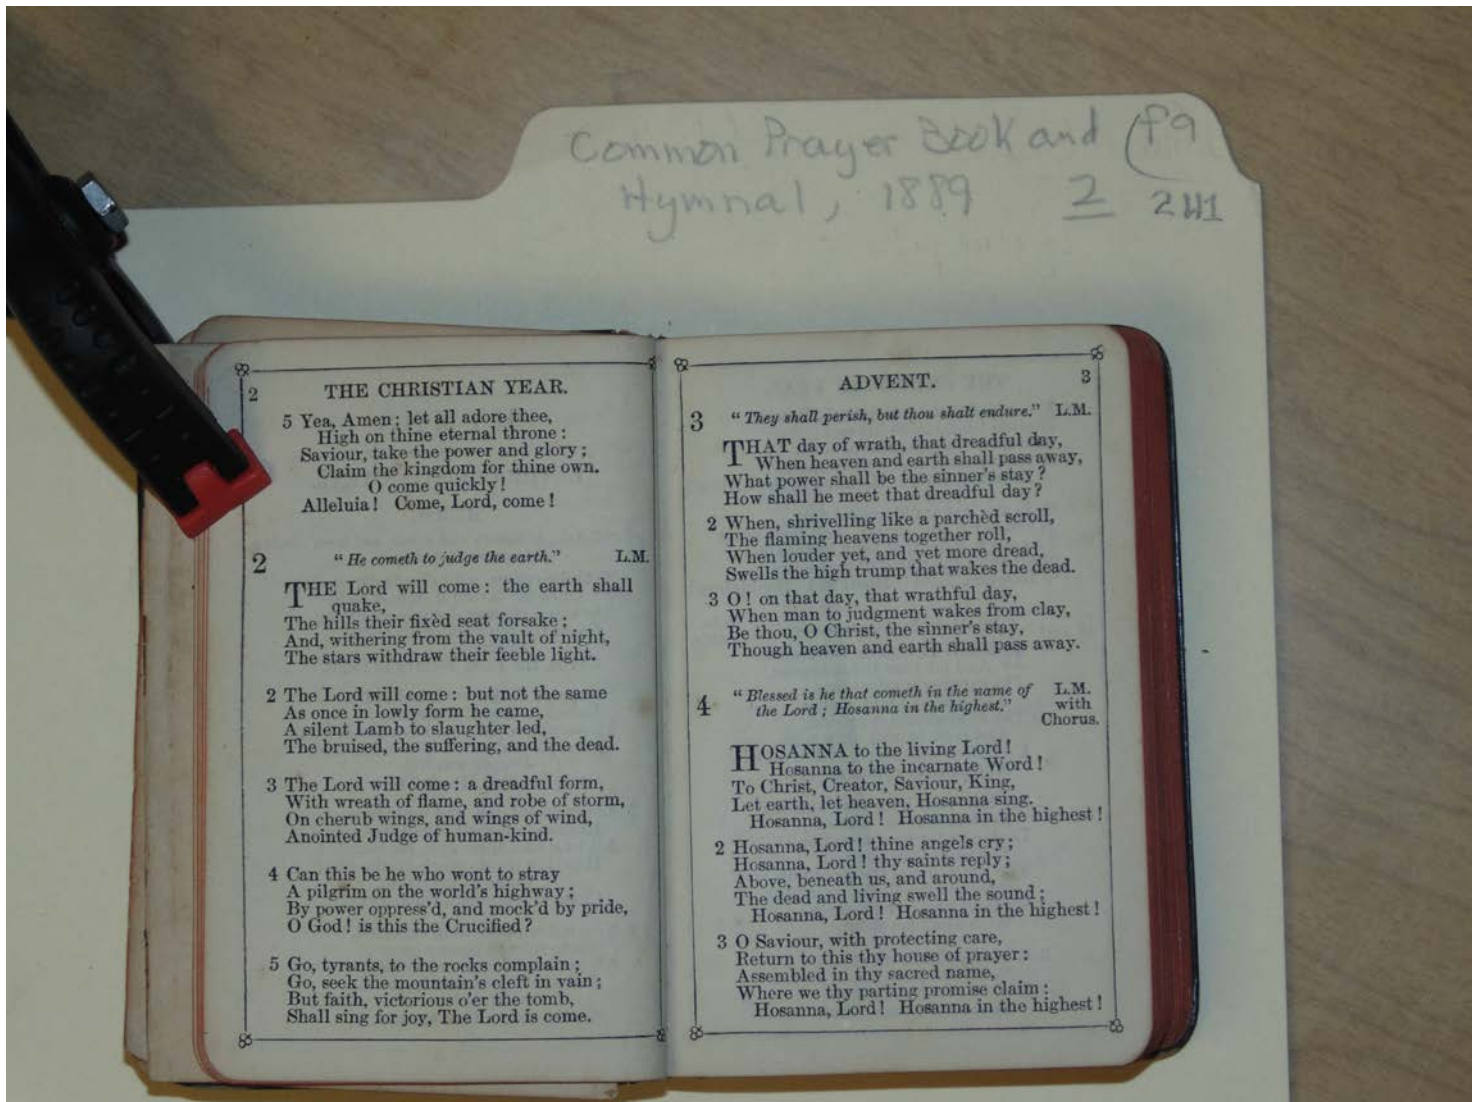 Common Prayer Book and (f9
Hymnal, 1889 2 241
2 THE CHRISTIAN YEAR.
5 Yea, Amen; let all adore thee,
High on thine eternal throne:
Saviour, take the power and glory;
Claim the kingdom for thine own.
O come quickly!
Alleluia! Come, Lord, come!
2 "He cometh to judge the earth." L.M.
THE Lord will come: the earth shall
quake,
The hills their fixèd seat forsake;
And, withering from the vault of night,
The stars withdraw their feeble light.
2 The Lord will come: but not the same
As once in lowly form he came,
A silent Lamb to slaughter led,
The bruised, the suffering, and the dead.
3 The Lord will come: a dreadful form,
With wreath of flame, and robe of storm,
On cherub wings, and wings of wind,
Anointed Judge of human-kind.
4 Can this be he who wont to stray
A pilgrim on the world's highway;
By power oppress'd, and mock'd by pride,
O God! is this the Crucified?
5 Go, tyrants, to the rocks complain;
Go, seek the mountain's cleft in vain;
But faith, victorious o'er the tomb,
Shall sing for joy, The Lord is come.
ADVENT. 3
3 "They shall perish, but thou shalt endure." L.M.
THAT day of wrath, that dreadful day,
When heaven and earth shall pass away,
What power shall be the sinner's stay?
How shall he meet that dreadful day?
2 When, shrivelling like a parchèd scroll,
The flaming heavens together roll,
When louder yet, and yet more dread,
Swells the high trump that wakes the dead.
3 O! on that day, that wrathful day,
When man to judgment wakes from clay,
Be thou, O Christ, the sinner's stay,
Though heaven and earth shall pass away.
4 "Blessed is he that cometh in the name of L.M.
the Lord; Hosanna in the highest." with
Chorus.
HOSANNA to the living Lord!
Hosanna to the incarnate Word!
To Christ, Creator, Saviour, King,
Let earth, let heaven, Hosanna sing.
Hosanna, Lord! Hosanna in the highest!
2 Hosanna, Lord! thine angels cry;
Hosanna, Lord! thy saints reply;
Above, beneath us, and around,
The dead and living swell the sound;
Hosanna, Lord! Hosanna in the highest!
3 O Saviour, with protecting care,
Return to this thy house of prayer:
Assembled in thy sacred name,
Where we thy parting promise claim:
Hosanna, Lord! Hosanna in the highest!